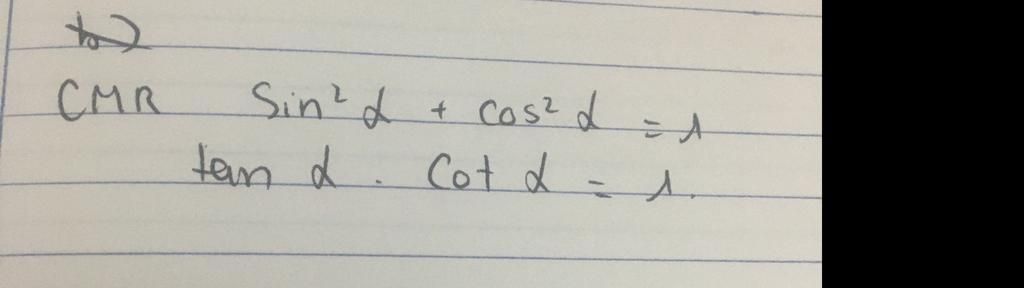 CMR Sin² α + cos² α = 1
tan α . Cot α = 1.